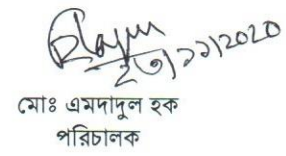 ২৩/১১/2020
মোঃ এমদাদুল হক
পরিচালক